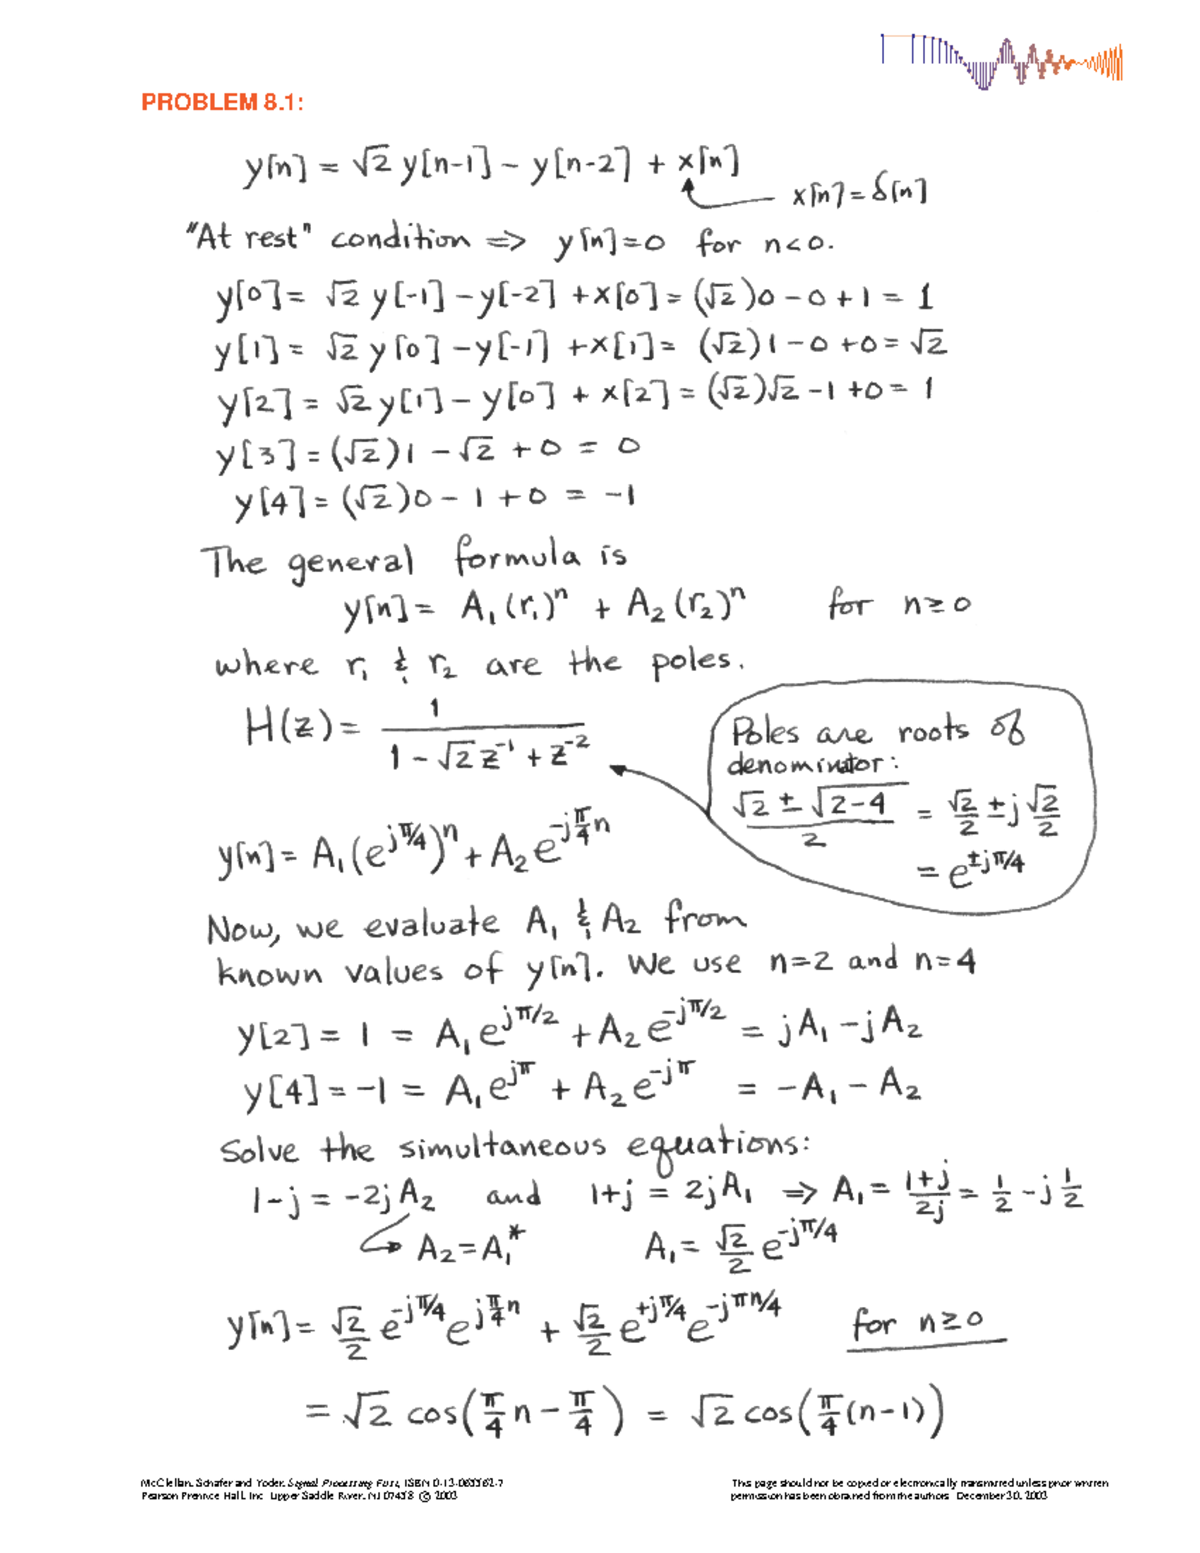 PROBLEM 8.1:
y[n] = √2 y[n-1] - y[n-2] + x[n]
x[n] = δ[n]
"At rest" condition ⇒ y[n]=0 for n<0.
y[0] = √2 y[-1] - y[-2] + x[0] = (√2)0 - 0 + 1 = 1
y[1] = √2 y[0] - y[-1] + x[1] = (√2)1 - 0 + 0 = √2
y[2] = √2 y[1] - y[0] + x[2] = (√2)√2 - 1 + 0 = 1
y[3] = (√2)1 - √2 + 0 = 0
y[4] = (√2)0 - 1 + 0 = -1
The general formula is
y[n] = A₁(r₁)ⁿ + A₂(r₂)ⁿ for n≥0
where r₁ & r₂ are the poles.
H(z) = 1 / (1 - √2 z⁻¹ + z⁻²)
Poles are roots of
denominator:
(√2 ± √(2-4)) / 2 = √2/2 ± j √2/2
= e^(±jπ/4)
y[n] = A₁(e^(jπ/4))ⁿ + A₂ e^(-jπ/4 n)
Now, we evaluate A₁ & A₂ from
known values of y[n]. We use n=2 and n=4
y[2] = 1 = A₁ e^(jπ/2) + A₂ e^(-jπ/2) = jA₁ - jA₂
y[4] = -1 = A₁ e^(jπ) + A₂ e^(-jπ) = -A₁ - A₂
Solve the simultaneous equations:
1-j = -2jA₂ and 1+j = 2jA₁ ⇒ A₁ = (1+j)/2j = 1/2 - j 1/2
A₂ = A₁* A₁ = √2/2 e^(-jπ/4)
y[n] = √2/2 e^(-jπ/4) e^(jπ/4 n) + √2/2 e^(+jπ/4) e^(-jπn/4) for n≥0
= √2 cos(π/4 n - π/4) = √2 cos(π/4 (n-1))
McClellan, Schafer and Yoder, Signal Processing First, ISBN 0-13-065562-7
Pearson Prentice Hall, Inc. Upper Saddle River, NJ 07458. © 2003
This page should not be copied or electronically transmitted unless prior written
permission has been obtained from the authors. December 30, 2003